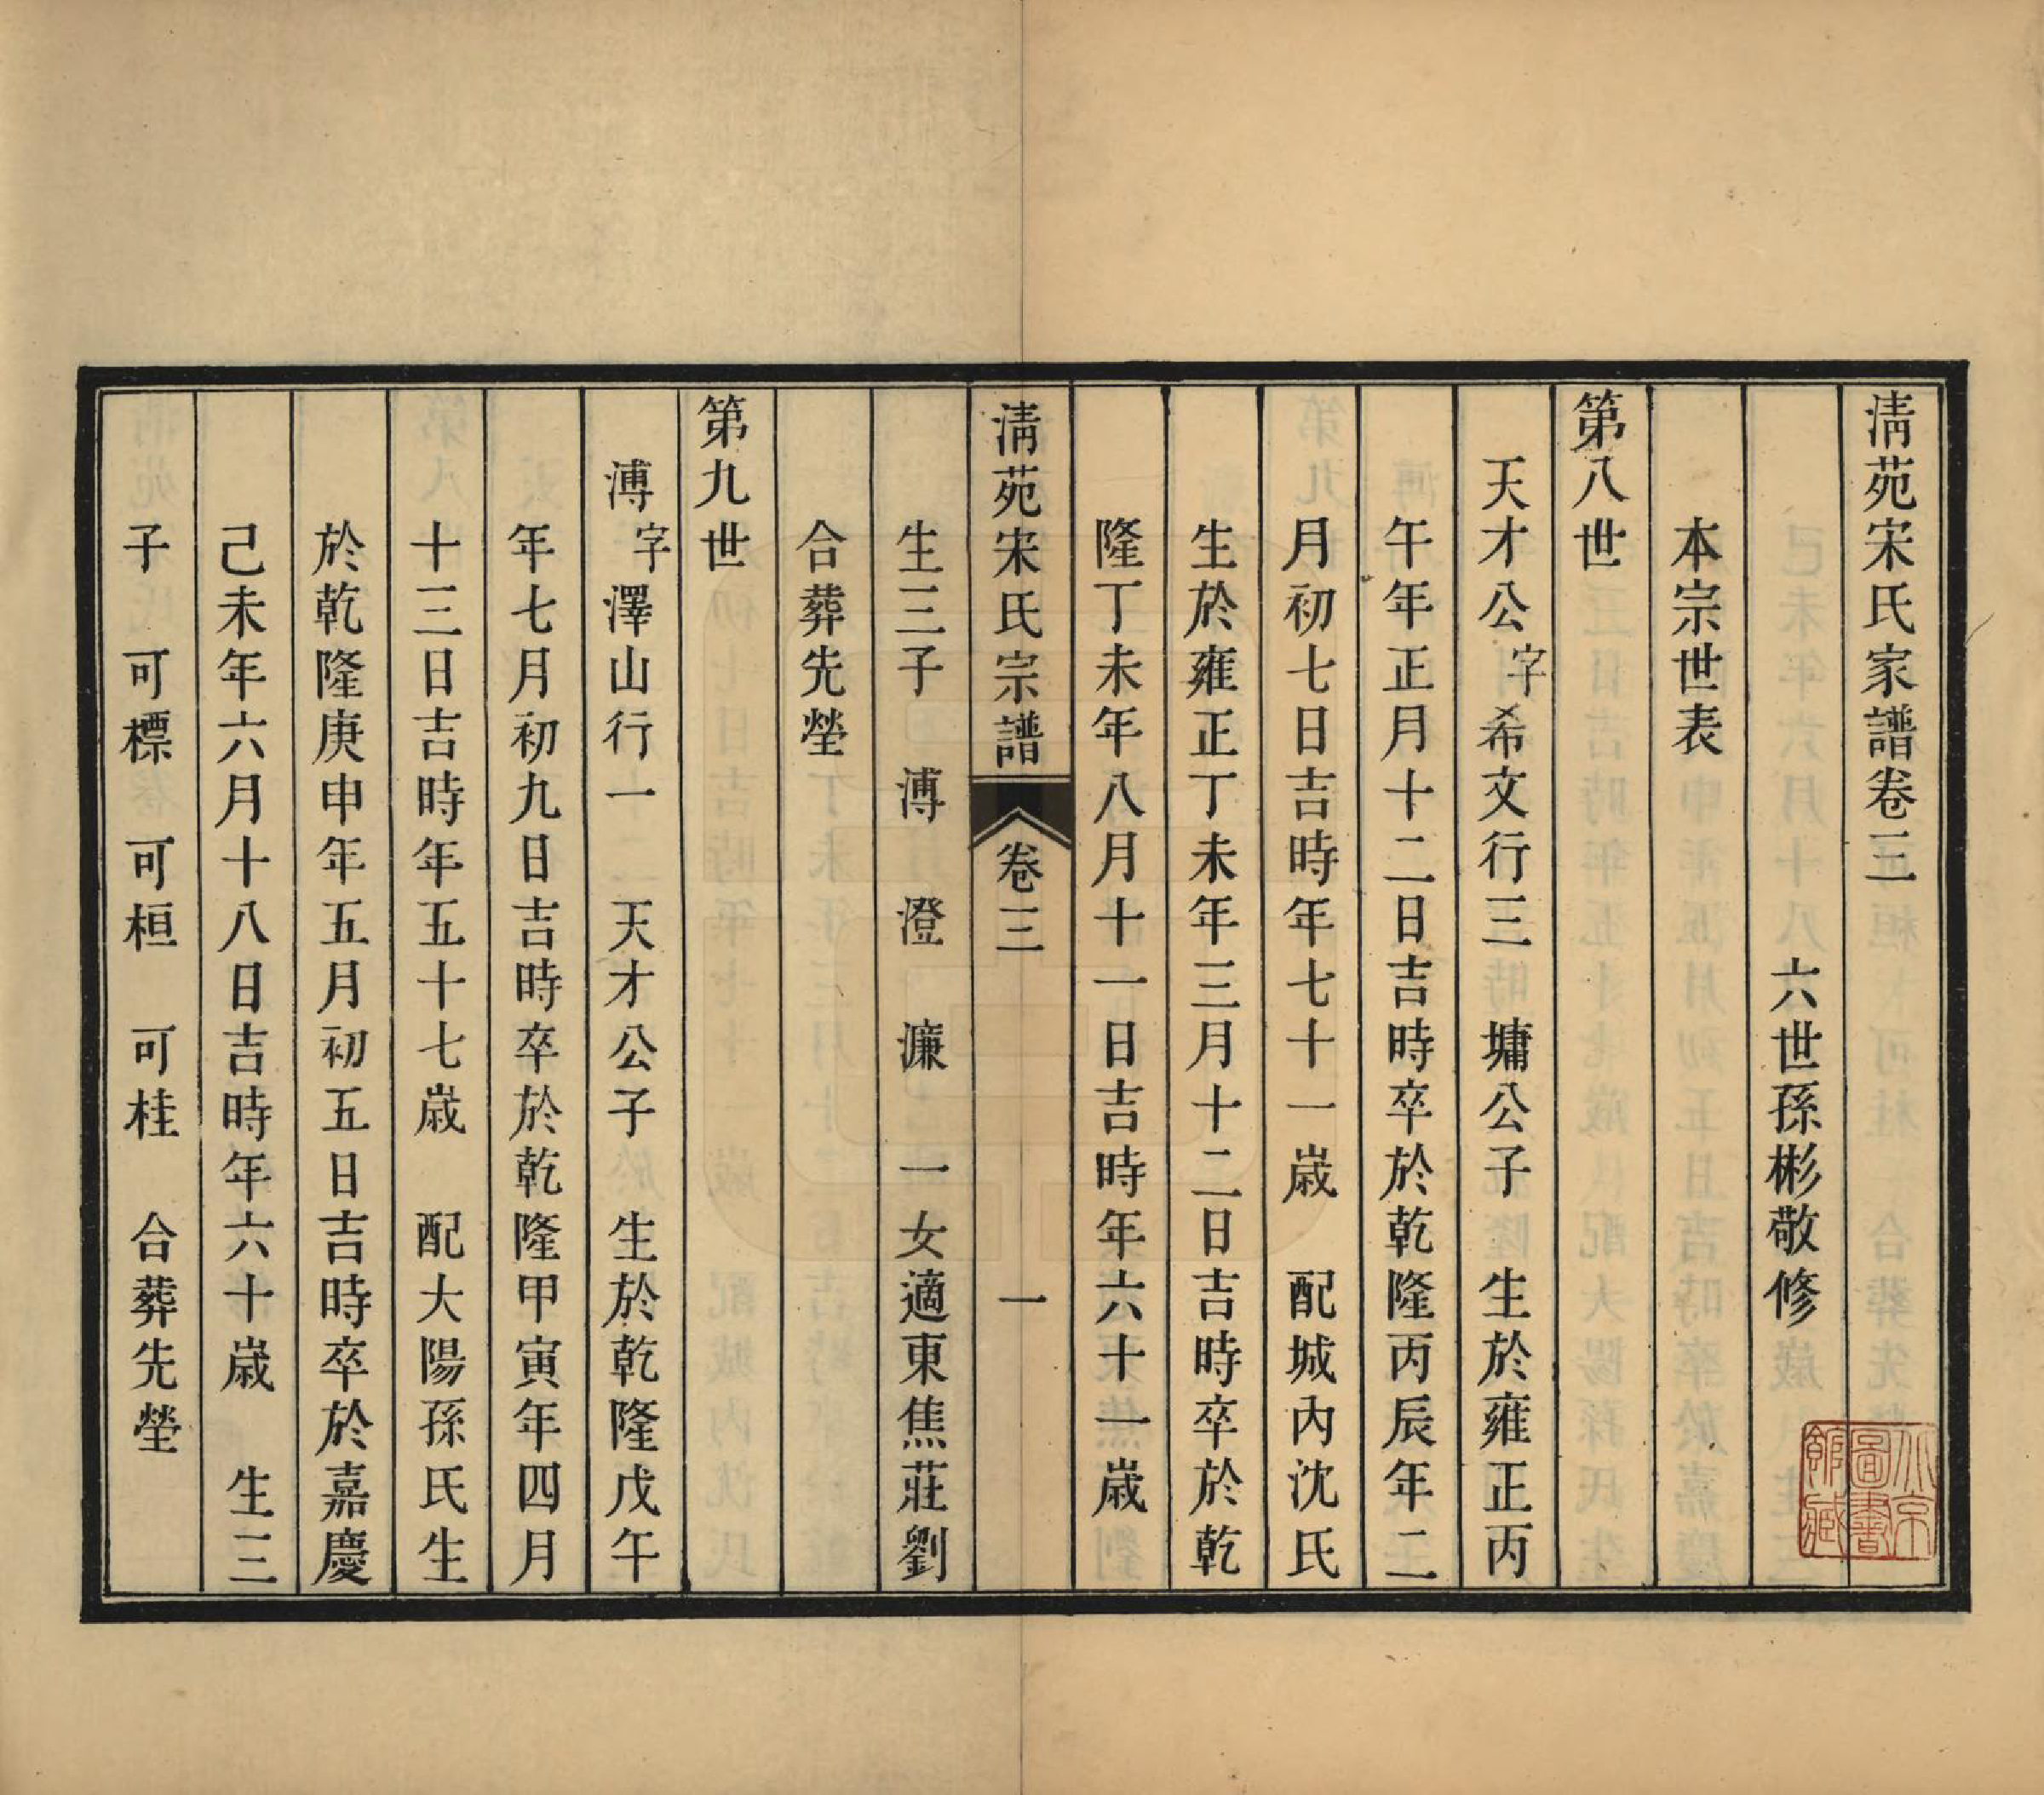 清苑宋氏家譜卷三
六世孫彬敬修
本宗世表
第八世
天才公字希文行三　墉公子　生於雍正丙
午年正月十二日吉時卒於乾隆丙辰年二
月初七日吉時年七十一歲　配城內沈氏
生於雍正丁未年三月十二日吉時卒於乾
隆丁未年八月十一日吉時年六十一歲
清苑宋氏宗譜　卷三　一
生三子　溥　澄　濂　一女適東焦莊劉
合葬先塋
第九世
溥字澤山行一　天才公子　生於乾隆戊午
年七月初九日吉時卒於乾隆甲寅年四月
十三日吉時年五十七歲　配大陽孫氏生
於乾隆庚申年五月初五日吉時卒於嘉慶
己未年六月十八日吉時年六十歲　生三
子　可標　可桓　可桂　合葬先塋
北京圖書館藏